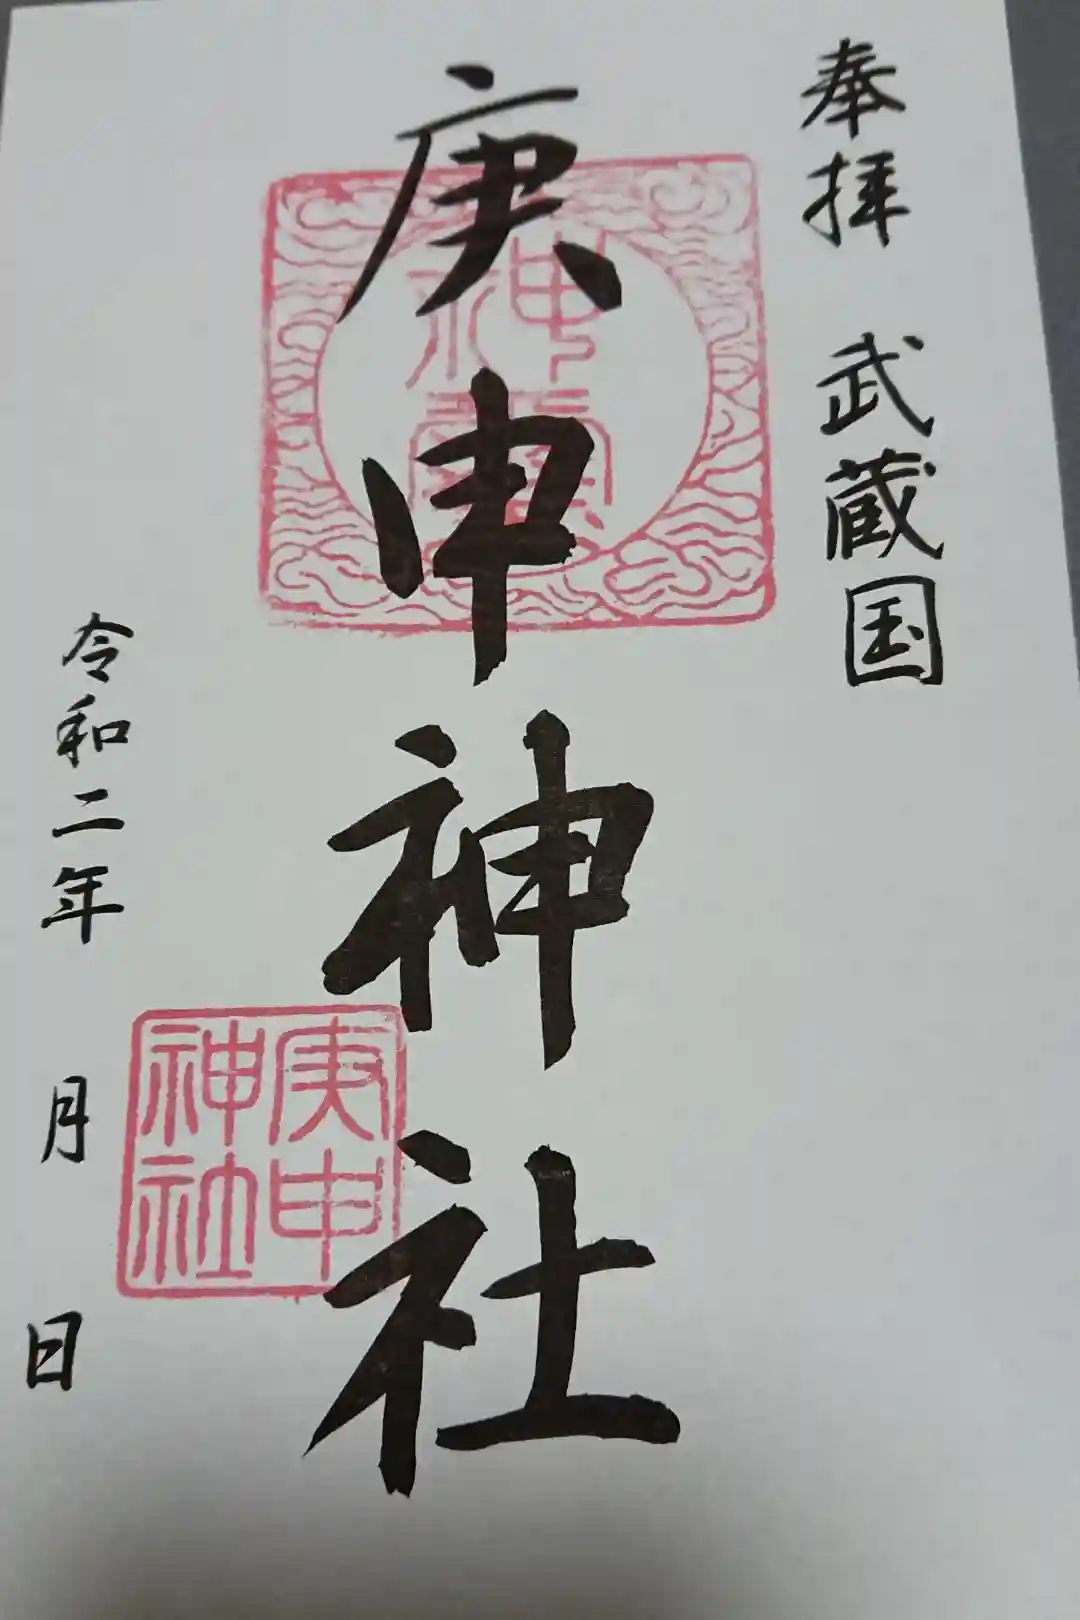 奉拝 武蔵国
庚申神社
令和二年 月 日
庚申
神社